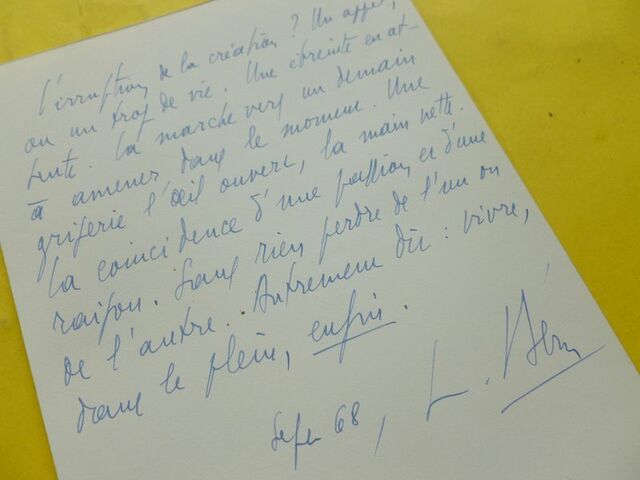 L'irruption de la création ? Un appel,
ou un trop de vie. Une étreinte en at-
tente. La marche vers un demain
à amener, dans le moment. Une
griserie l'œil ouvert, la main nette.
La coïncidence d'une passion et d'une
raison. Sans rien perdre de l'un ou
de l'autre. Autrement dit : vivre,
dans le plein, enfin.
68, L.